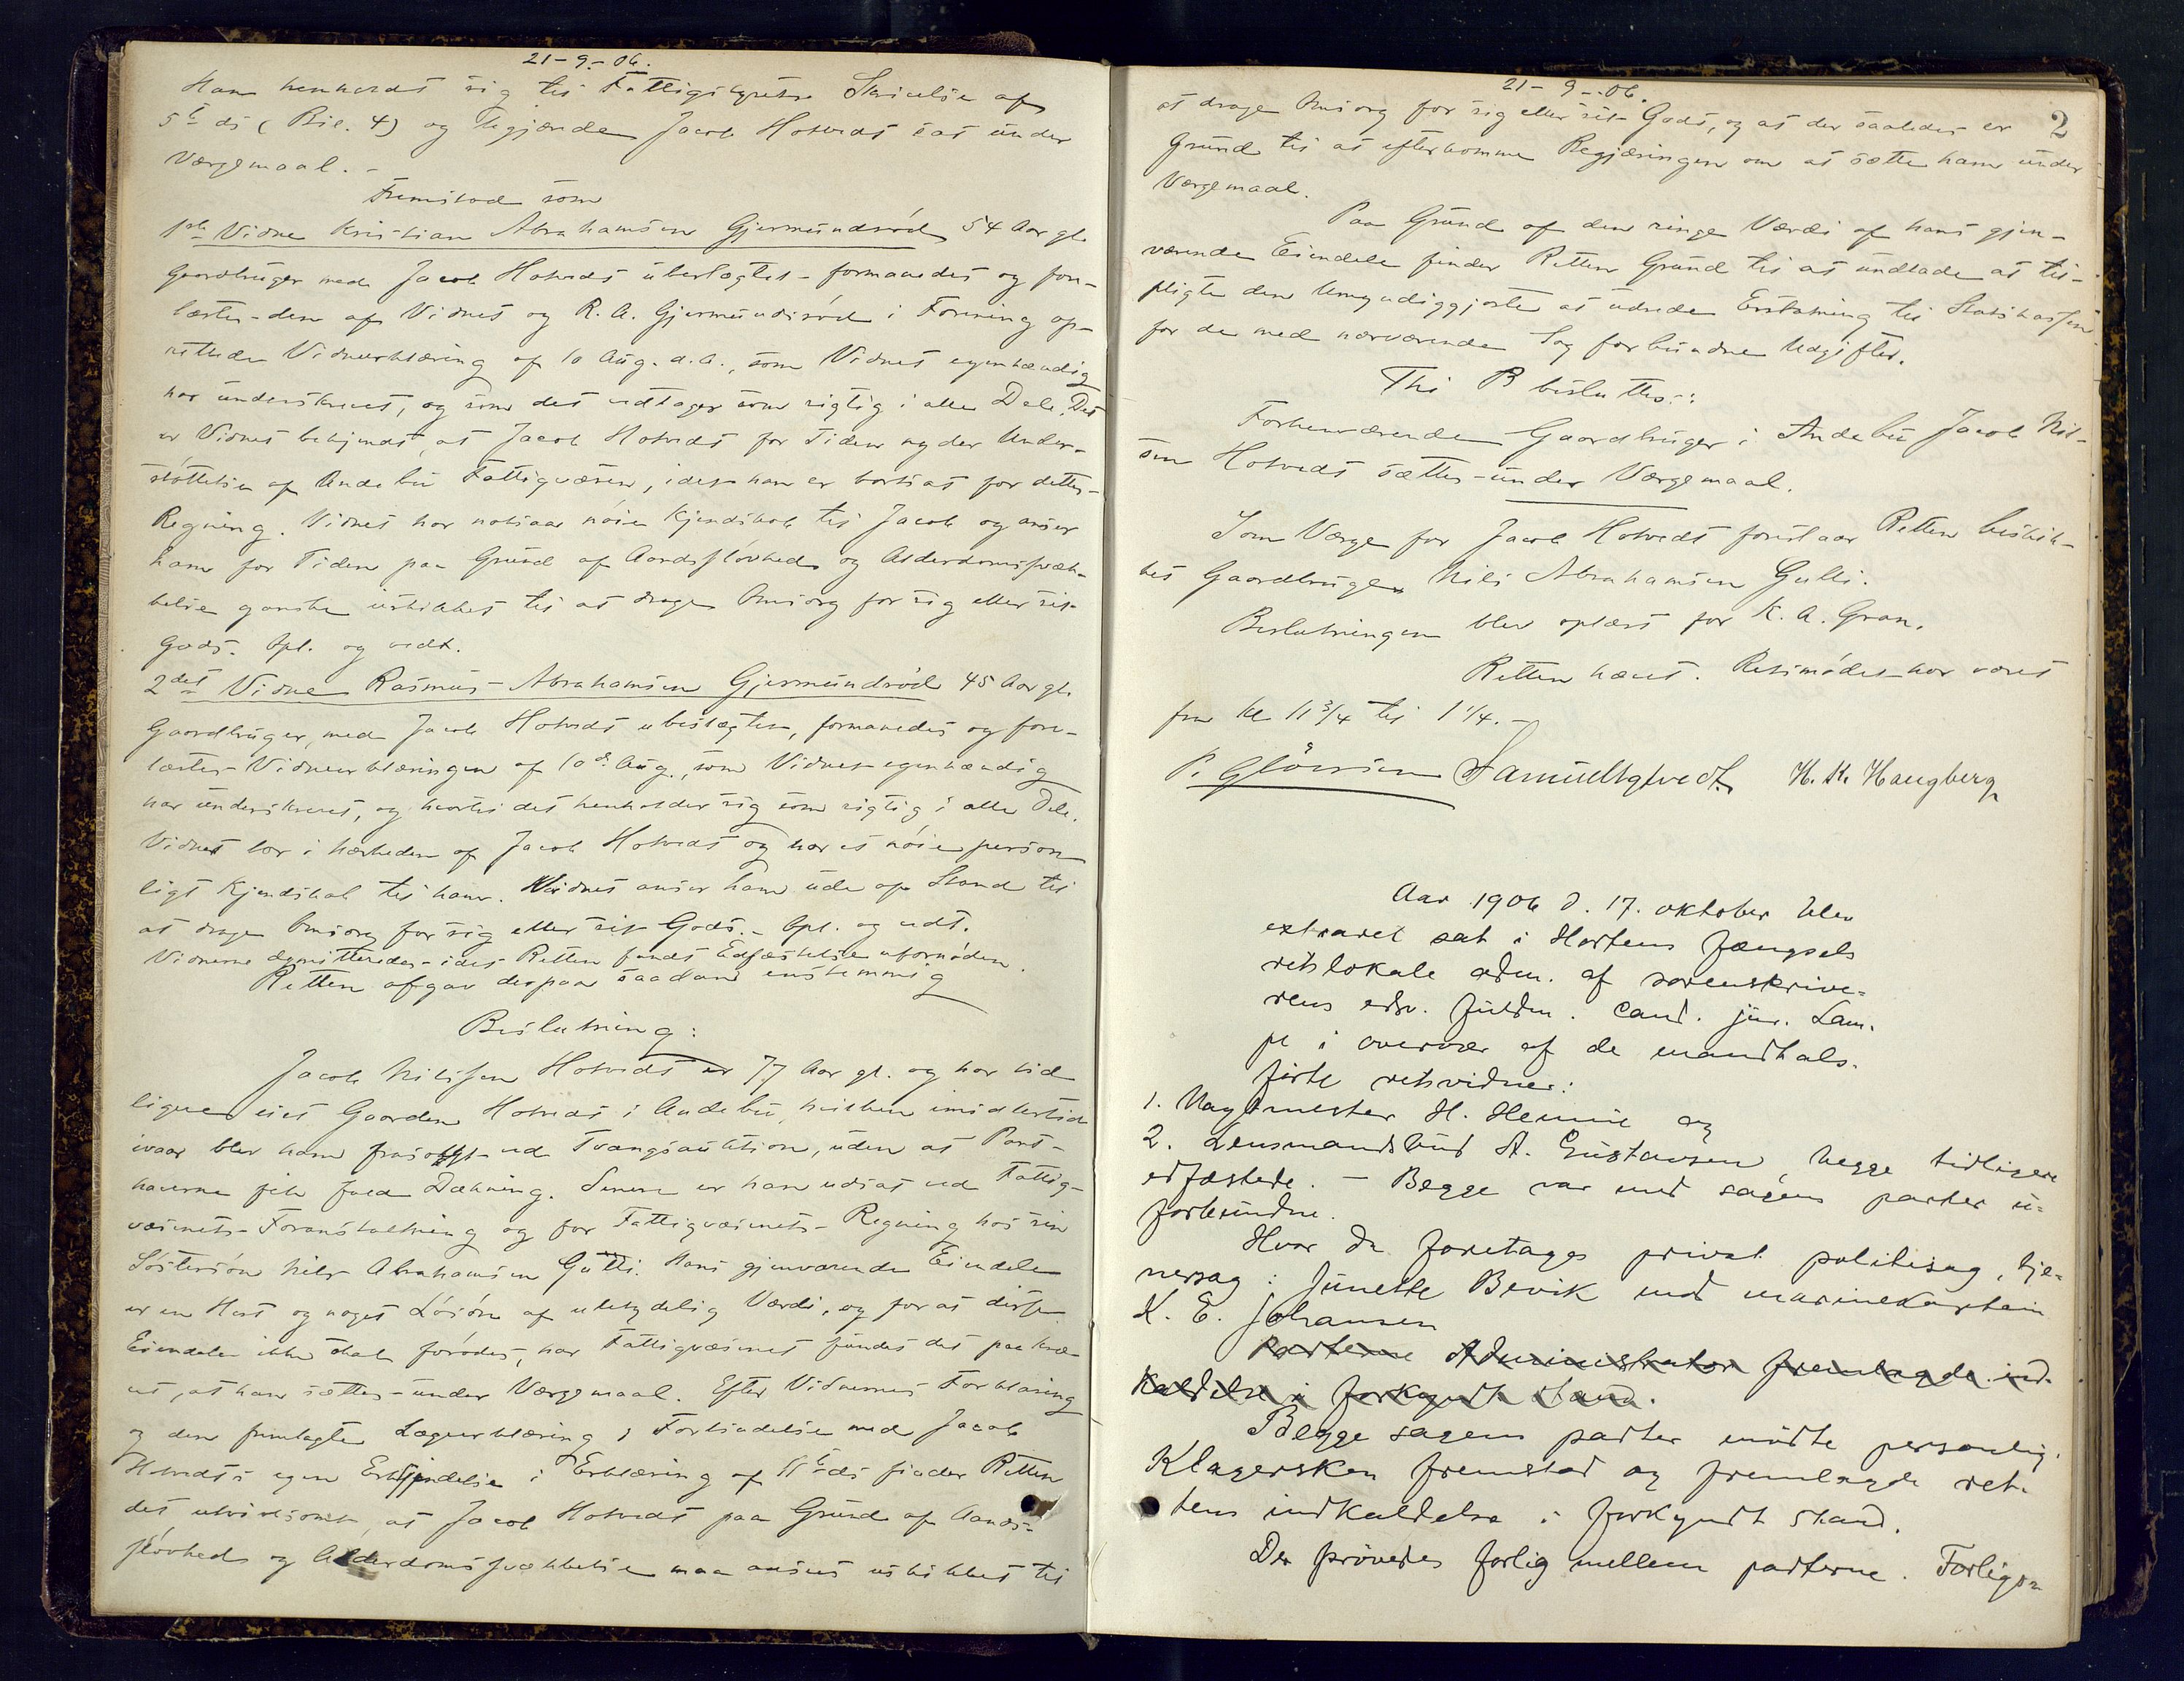 21-9-06.
Han henholdt sig til Fattigstyrets Skrivelse af
5te ds (Bil. 4) og begjærede Jacob Hotvedt sat under
Værgemaal. -
Fremstod som
1ste Vidne Kristian Abrahamsen Gjermundrød 54 Aar gl.
Gaardbruger med Jacob Hotvedt ubeslægtet - formanedes og fore-
læstes den af Vidnet og R. A. Gjermundsrød i Forening op-
satte Vidneerklæring af 10 Aug. d.A., som Vidnet egenhændig
har underskrevet, og som det vedtager som rigtig i alle Dele. Det
er Vidnet bekjendt, at Jacob Hotvedt for Tiden nyder Under-
støttelse af Andebu Fattigvæsen, idet han er bortsat for dettes
Regning. Vidnet har nøie Kjendskab til Jacob og anser
ham for Tiden paa Grund af Aandssløvhed og Alderdomssvæk-
kelse ganske uskikket til at drage Omsorg for sig eller sit
Gods. Opl. og vedt.
2det Vidne Rasmus Abrahamsen Gjermundrød 45 Aar gl.
Gaardbruger, med Jacob Hotvedt ubeslægtet, formanedes og fore-
læstes Vidneerklæringen af 10de Aug., som Vidnet egenhændig
har underskrevet, og hvortil det henholder sig som rigtig i alle Dele.
Vidnet bor i Nærheden af Jacob Hotvedt og har et nøie person
ligt Kjendskab til ham. Vidnet anser ham ude af Stand til
at drage Omsorg for sig eller sit Gods. - Opl. og vedt.
Vidnerne demitteredes - idet Retten fandt Edfæstelse ufornøden.
Retten afgav derpaa saadan enstemmig
Beslutning:
Jacob Nilssen Hotvedt er 77 Aar gl. og har tid
ligere eiet Gaarden Hotvedt i Andebu, hvilken imidlertid
ivaar blev ham frasolgt ved Tvangsauktion, uden at Pant-
haverne fik fuld Dækning. Senere er han udsat ved Fattig-
væsenets Foranstaltning og for Fattigvæsenets Regning hos sin
Søstersøn Nils Abrahamsen Gulli. Hans gjenværende Eiendele
er en Hest og noget Løsøre af ubetydelig Værdi, og for at disse
Eiendele ikke skal forødes, har Fattigvæsenet fundet det paakræ-
vet, at han sættes under Værgemaal. Efter Vidnernes Forklaring
og den fremlagte Lægeerklæring i Forbindelse med Jacob
Hotvedts egen Erkjendelse i Erklæring af 11te ds finder Retten
det utvivlsomt, at Jacob Hotvedt paa Grund af Aands-
sløvhed og Alderdomssvækkelse maa ansees uskikket til
21-9-06.
2
at drage Omsorg for sig eller sit Gods, og at der saaledes er
Grund til at efterkomme Begjæringen om at sætte ham under
Værgemaal.
Paa Grund af den ringe Værdi af hans gjen-
værende Eiendele finder Retten Grund til at undlade at til-
pligte den Umyndiggjorte at udrede Erstatning til Statskassen
for de med nærværende Sag forbundne Udgifter.
Thi besluttes:
Forhenværende Gaardbruger i Andebu Jacob Nils-
sen Hotvedt sættes under Værgemaal.
Som Værge for Jacob Hotvedt foreslaar Retten beskik-
ket Gaardbruger Nils Abrahamsen Gulli.
Beslutningen blev oplæst for K. A. Gran.
Retten hævet. Retsmødet har varet
fra kl 11 3/4 til 1 1/4. -
P. Gløersen Samuel H. K. Haugberg
Aar 1906 d. 17. oktober blev
extraret sat i Hortens fængsels
retslokale adm. af sorenskrive-
rens edsv. fuldm. cand. jur. Lam-
pe i overvær af de mandtals-
førte retsvidner:
1. Vagtmester H. Hennie og
2. Lensmandsbud A. Gustavsen, begge tidligere
edfæstede. - Begge var med sagens parter u-
forbundne.
Hvor da foretages privat politisag, tje-
nersag: Junette Bevik mod marinekaptein
K. E. Johansen
Parterne Administrator fremlagde ind-
kaldelse i forkyndt stand.
Begge sagens parter mødte personlig.
Klagersken fremstod og fremlagde ret-
tens indkaldelse i forkyndt stand.
Der prøvedes forlig mellem parterne. Forligs-